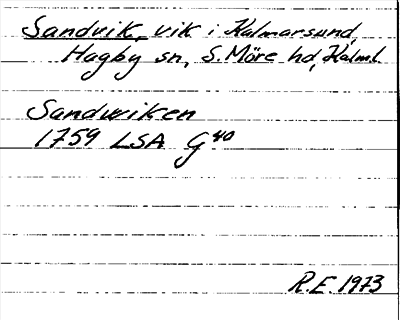 Sandvik, vik i Kalmarsund,
Hagby sn, S. Möre hd, Kalml.
Sandwiken
1759 LSA G 40
R.E. 1973